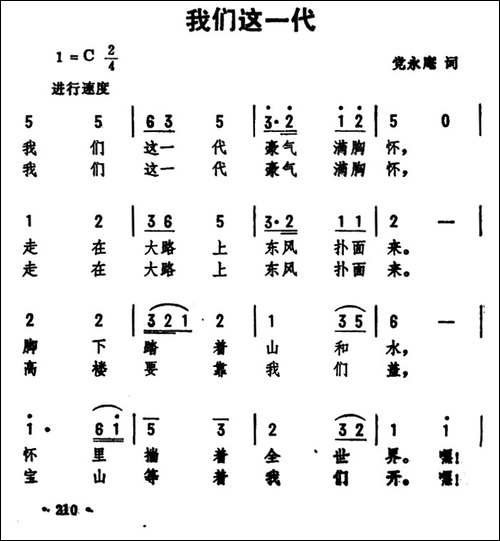 我们这一代
1=C 2/4
党永庵 词
进行速度
5 5 | 6 3 5 | 3·2 1 2 | 5 0 |
我 们 这一 代 豪气 满胸 怀,
我 们 这一 代 豪气 满胸 怀,
1 2 | 3 6 5 | 3·2 1 1 | 2 — |
走 在 大路 上 东风 扑面 来。
走 在 大路 上 东风 扑面 来。
2 2 | 3 2 1 2 | 1 3 5 | 6 — |
脚 下 踏 着 山 和 水,
高 楼 要 靠 我 们 盖,
1· 6 1 | 5 3 | 2 3 2 | 1 1 |
怀 里 揣 着 全 世 界。喔!
宝 山 等 着 我 们 开。喔!
210